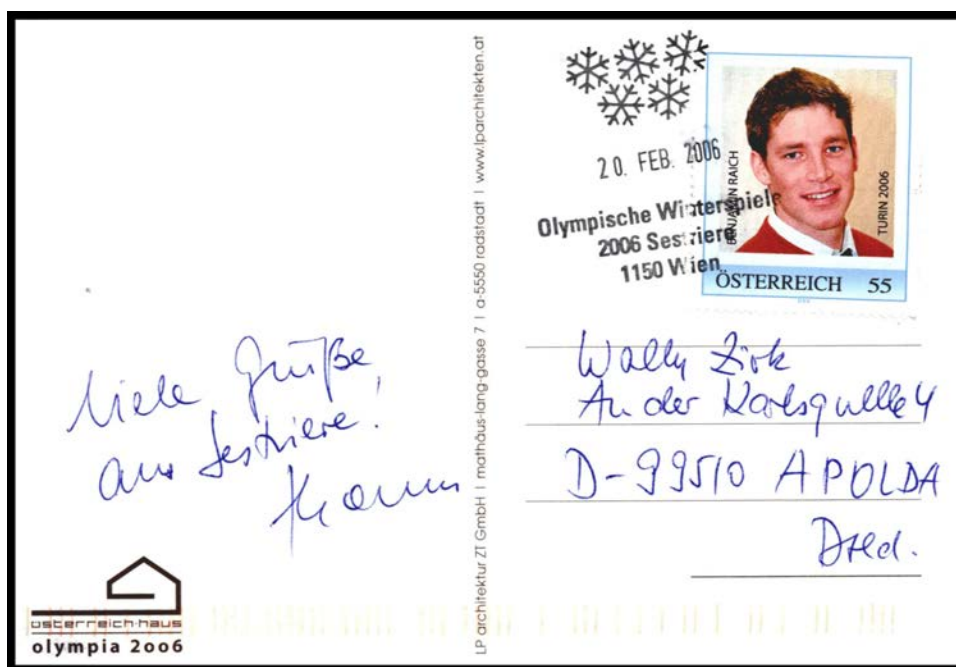 Viele Grüße
aus Sestriere!
österreich-haus
olympia 2006
LP architektur ZT GmbH | mathäus-lang-gasse 7 | a-5550 radstadt | www.lparchitekten.at
20. FEB. 2006
Olympische Winterspiele
2006 Sestriere
1150 Wien
BENJAMIN RAICH
TURIN 2006
ÖSTERREICH 55
Wally Zirk
An der Karlsquelle 4
D-99510 APOLDA